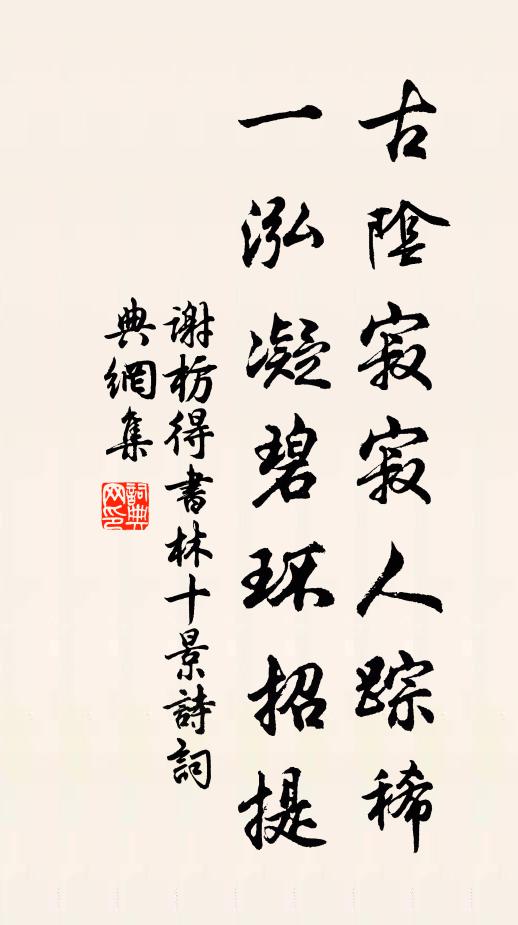 古陰寂寂人踪稀
一泓凝碧环招提
谢枋得書林十景詩詞
典網集
詞典網印